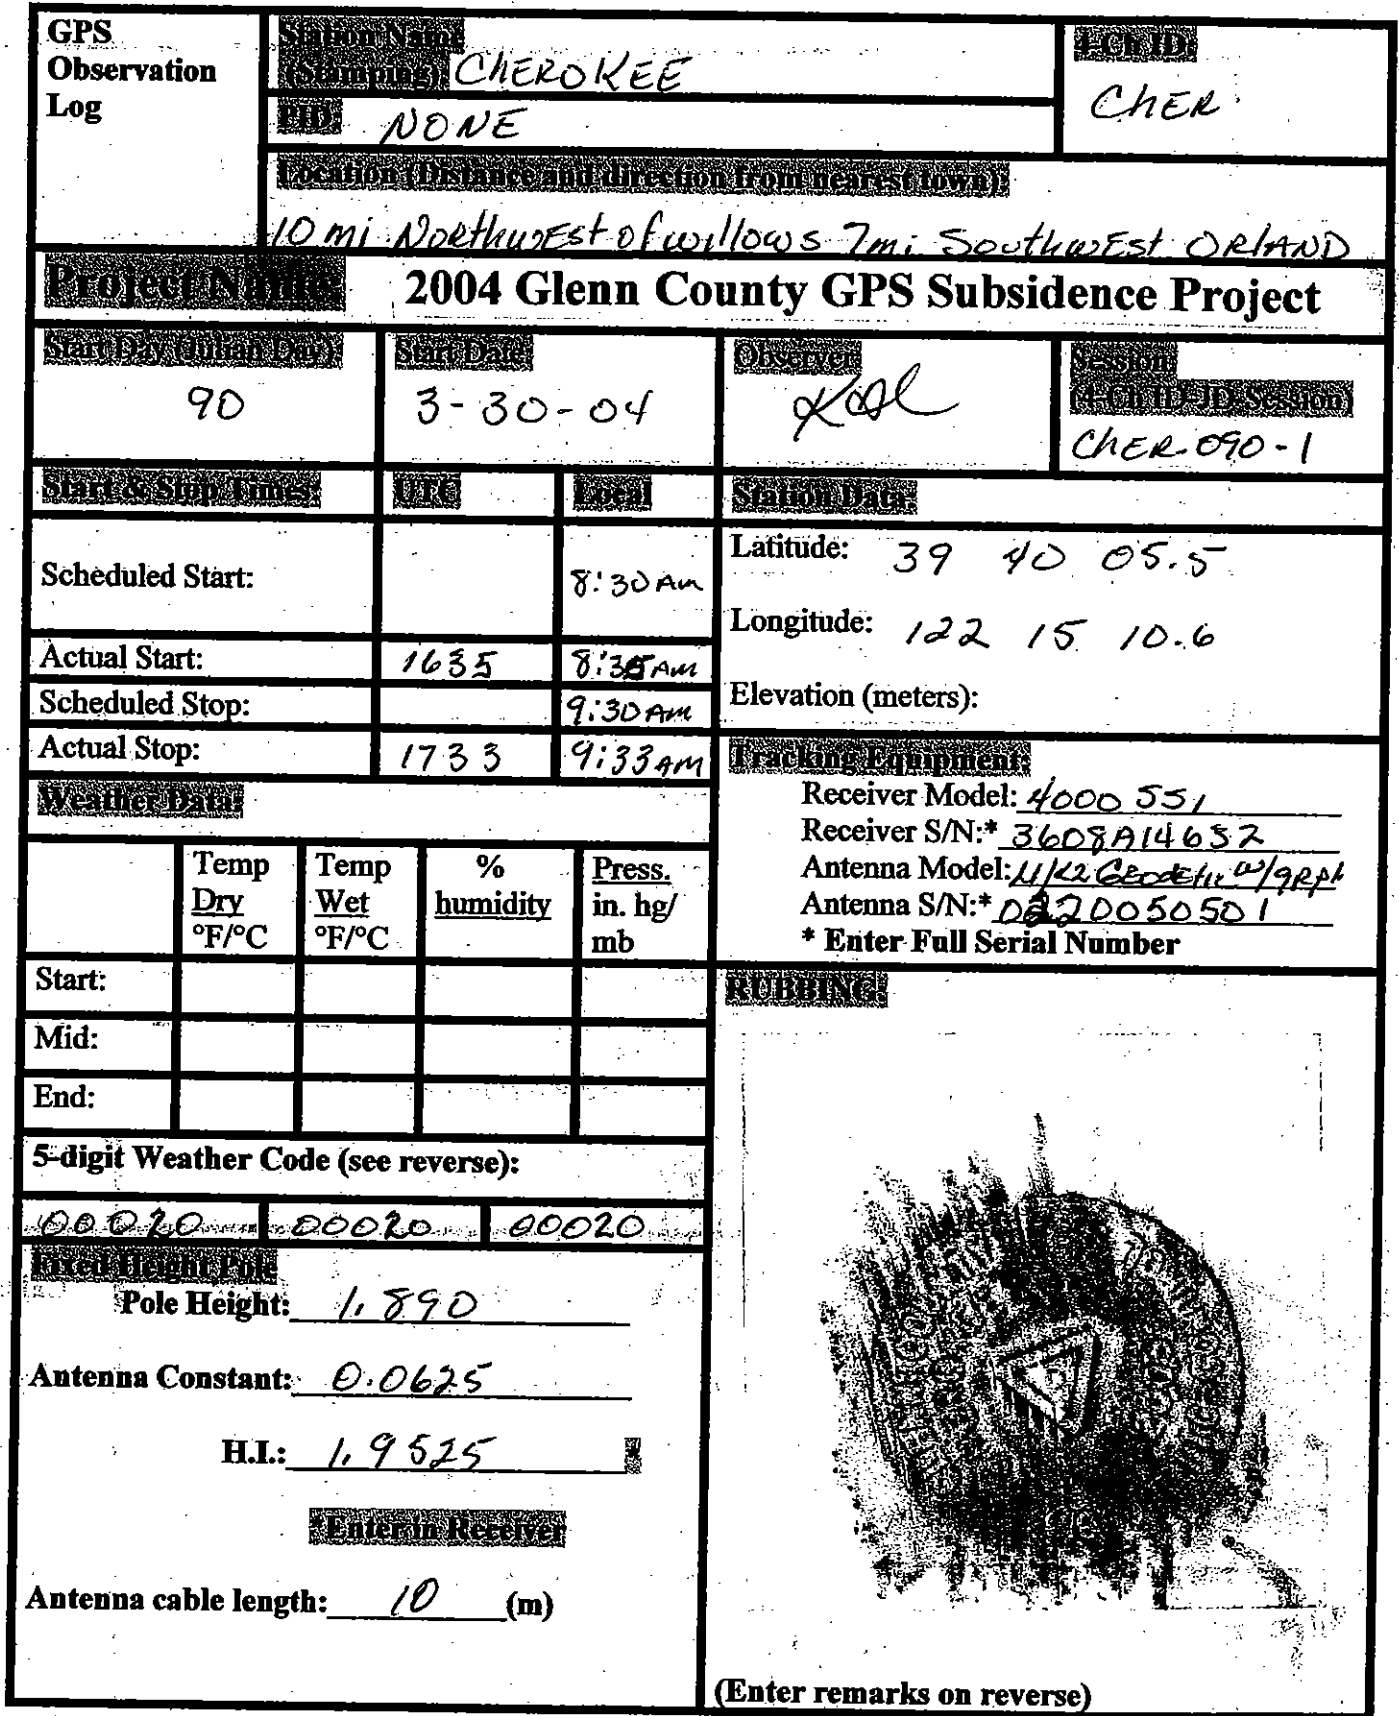 GPS
Observation
Log
Station Name
(Stamping): CHEROKEE
4-Ch ID:
CHER
PID: NONE
Location (Distance and direction from nearest town):
10 mi Northwest of willows 7mi Southwest ORLAND
Project Name: 2004 Glenn County GPS Subsidence Project
Start Day (Julian Day):
90
Start Date:
3-30-04
Observer:
Session:
(4-Ch ID-JD-Session)
CHER-090-1
Start & Stop Times: UTC Local
Scheduled Start: 8:30 AM
Actual Start: 1635 8:35 AM
Scheduled Stop: 9:30 AM
Actual Stop: 1733 9:33 AM
Station Data:
Latitude: 39 40 05.5
Longitude: 122 15 10.6
Elevation (meters):
Tracking Equipment:
Receiver Model: 4000 SSI
Receiver S/N:* 3608A14632
Antenna Model: Geodetic
Antenna S/N:* 0220050501
* Enter Full Serial Number
Weather Data:
Temp Dry °F/°C
Temp Wet °F/°C
% humidity
Press. in. hg/ mb
Start:
Mid:
End:
5-digit Weather Code (see reverse):
00020 00020 00020
Fixed Height Pole
Pole Height: 1.890
Antenna Constant: 0.0625
H.I.: 1.9525 *
*Enter in Receiver
Antenna cable length: 10 (m)
RUBBING:
(Enter remarks on reverse)